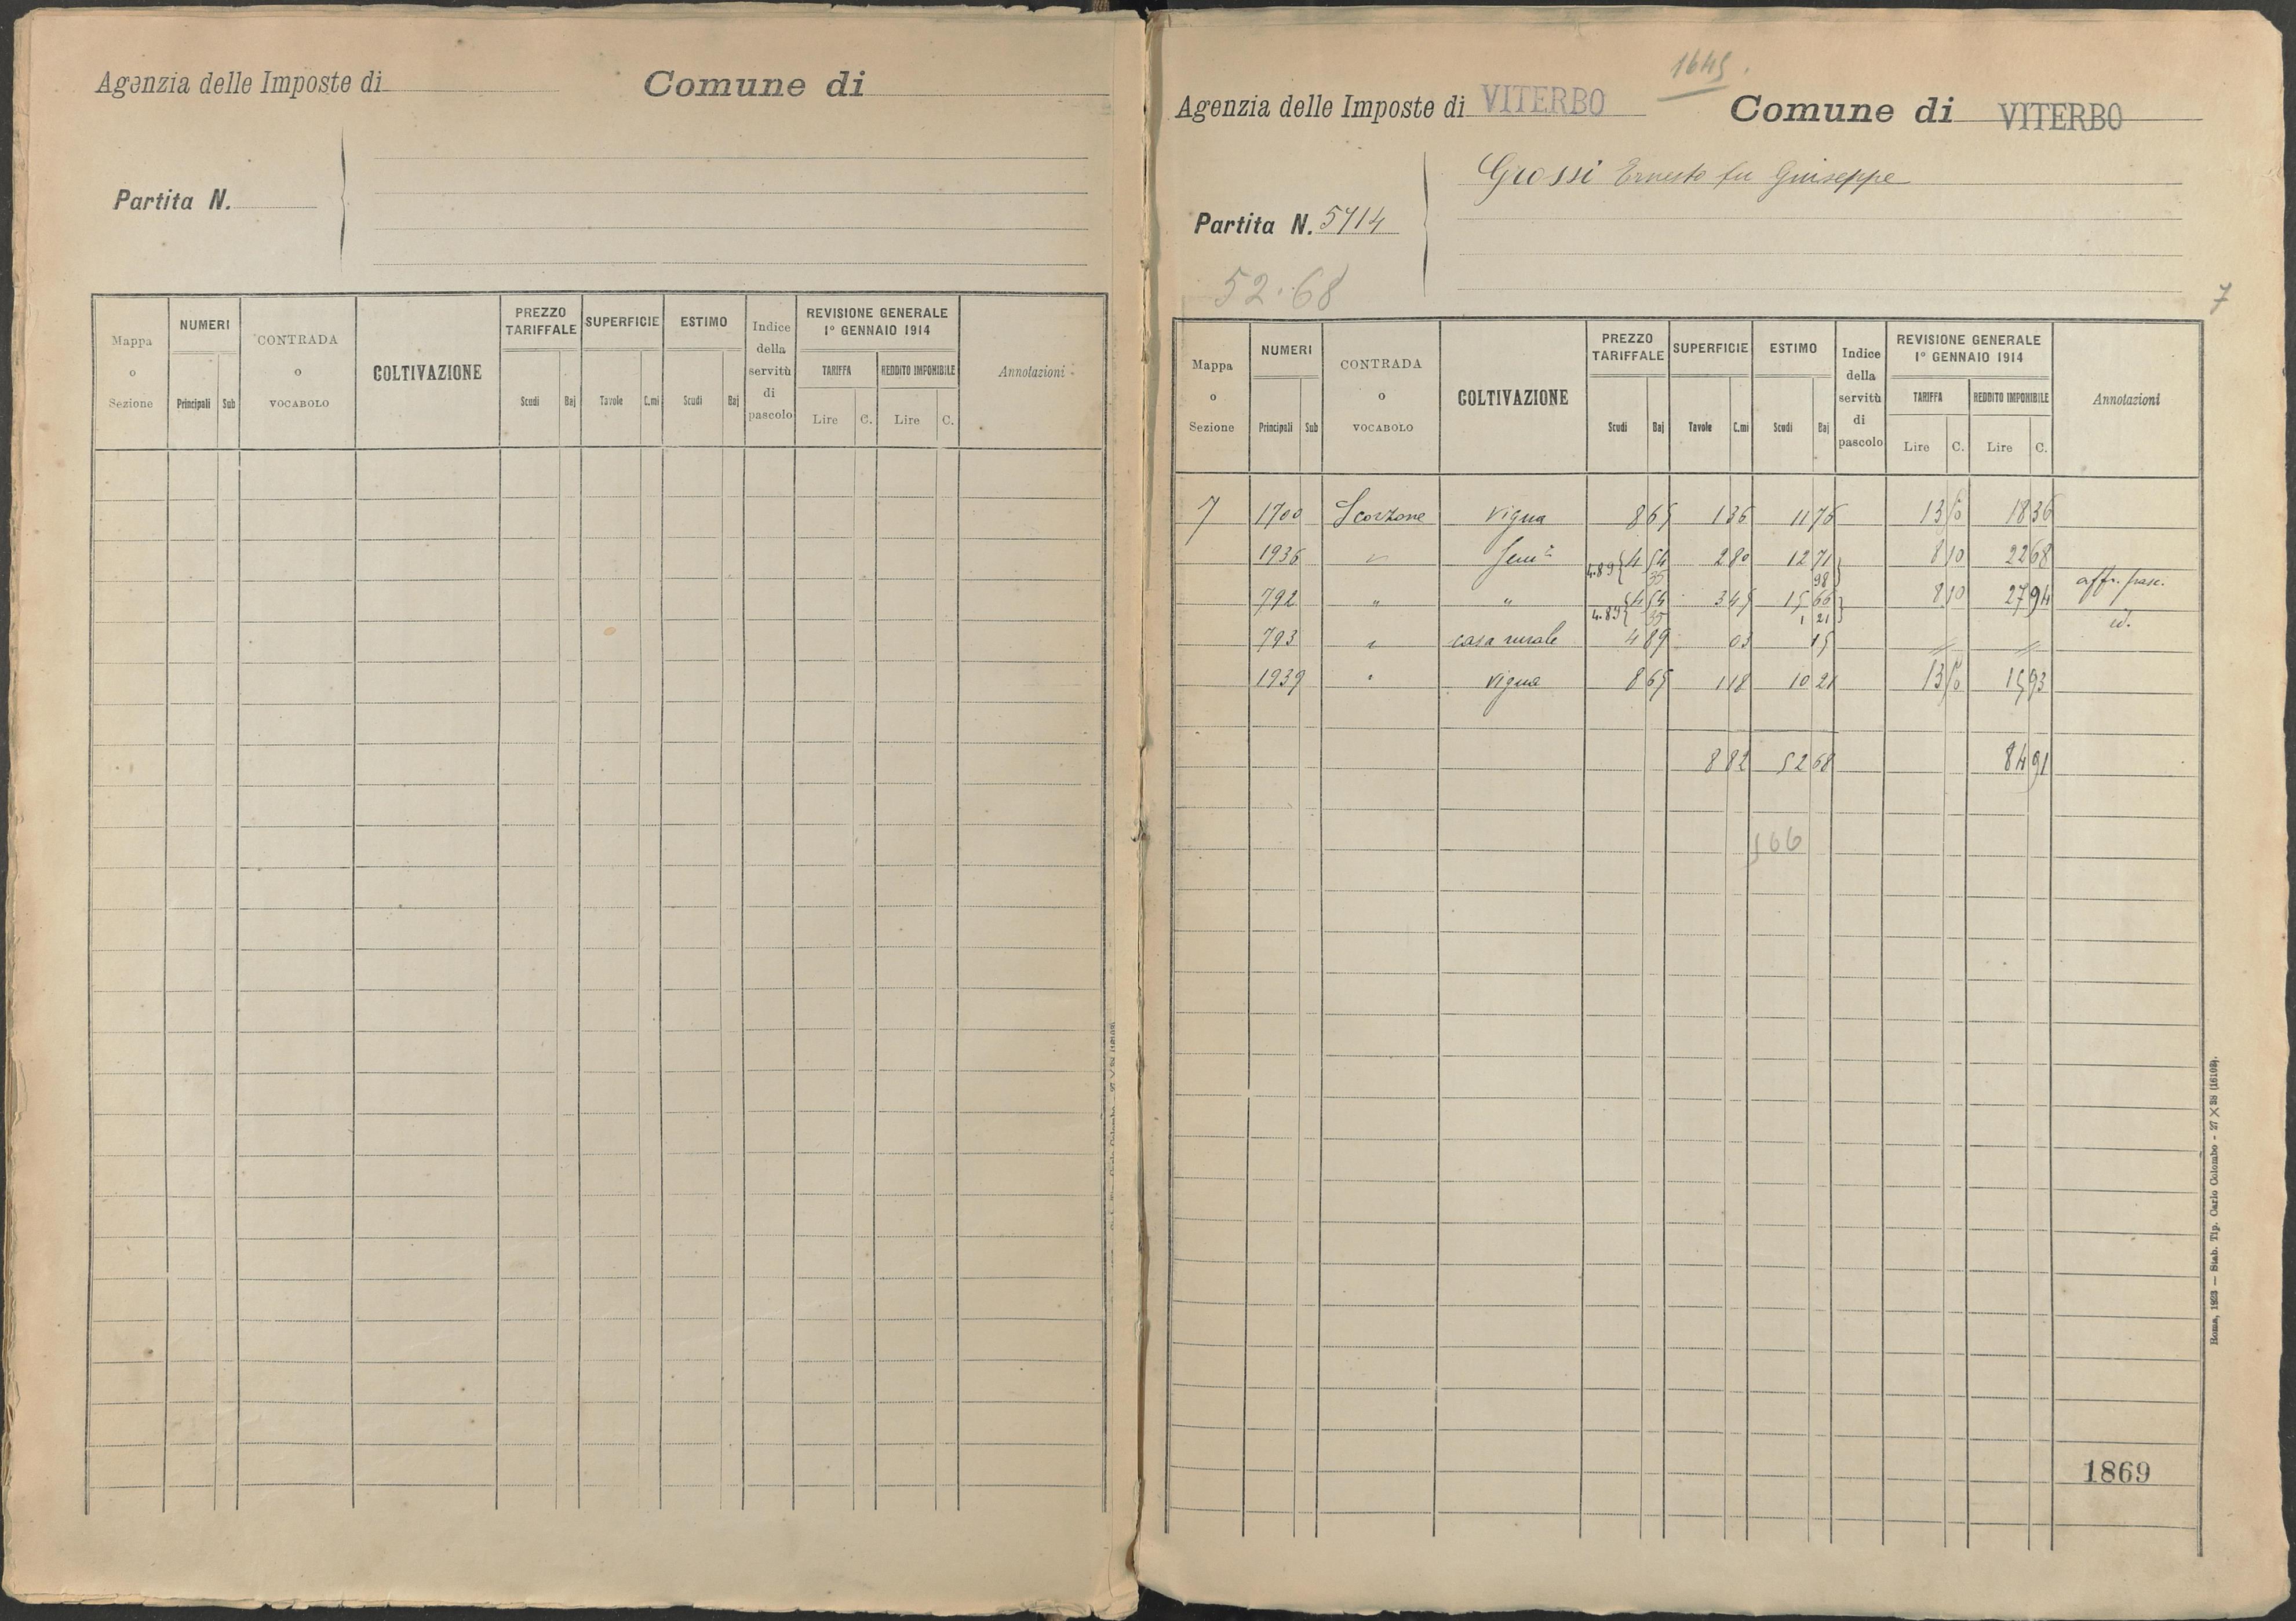 Agenzia delle Imposte di
Comune di
Partita N.
Mappa o Sezione
NUMERI
Principali Sub
CONTRADA o VOCABOLO
COLTIVAZIONE
PREZZO TARIFFALE
Scudi Baj
SUPERFICIE
Tavole C.mi
ESTIMO
Scudi Baj
Indice della servitù di pascolo
REVISIONE GENERALE 1° GENNAIO 1914
TARIFFA
Lire C.
REDDITO IMPONIBILE
Lire C.
Annotazioni
1645.
Agenzia delle Imposte di VITERBO
Comune di VITERBO
Grossi Ernesto fu Giuseppe
Partita N. 5714
52.68
7
Mappa o Sezione
NUMERI
Principali Sub
CONTRADA o VOCABOLO
COLTIVAZIONE
PREZZO TARIFFALE
Scudi Baj
SUPERFICIE
Tavole C.mi
ESTIMO
Scudi Baj
Indice della servitù di pascolo
REVISIONE GENERALE 1° GENNAIO 1914
TARIFFA
Lire C.
REDDITO IMPONIBILE
Lire C.
Annotazioni
7 1700 Scorzone Vigna 8 65 1 36 11 76 13 50 18 36
1936 " Semi° 4.89 { 4 54 2 80 12 71 } 8 10 22 68
35 98 affr. pasc.
792 " " 4.89 { 4 54 3 45 15 66 } 8 10 27 94
35 1 21 id.
793 " casa rurale 4 89 03 15 " "
1939 " Vigna 8 65 1 18 10 21 13 50 15 93
8 82 52 68 84 91
566
1869
Roma, 1923 — Stab. Tip. Carlo Colombo - 27 × 38 (16102).